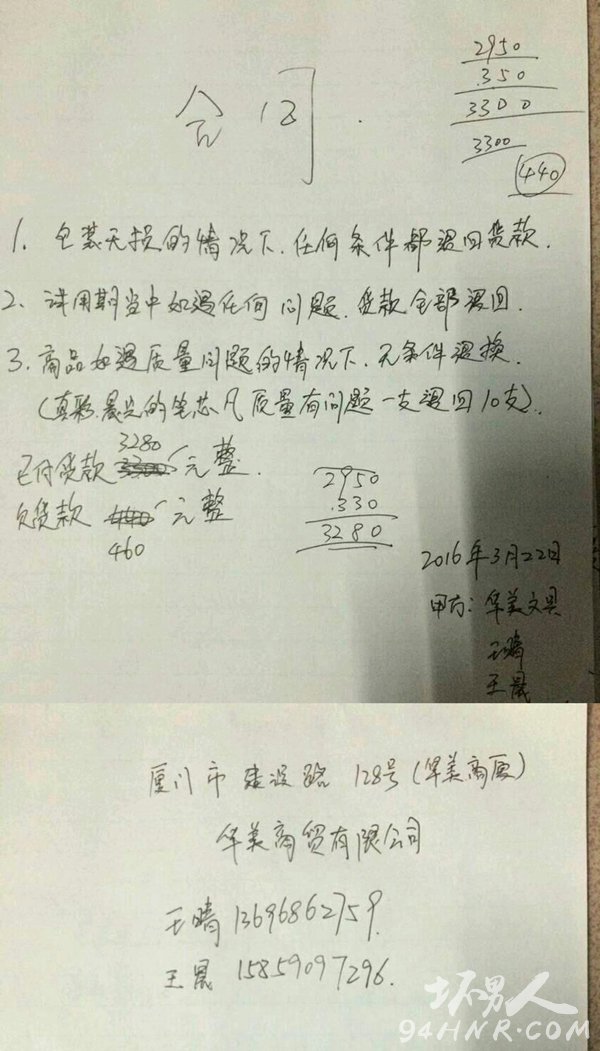 合同.
2950
350
3300
3300
440
1、包装无损的情况下.任何条件都退回货款.
2、试用期当中如遇任何问题.货款全部退回.
3.商品如遇质量问题的情况下.无条件退换.
(真彩.晨光的笔芯凡质量有问题一支退回10支).
3280
已付货款 元整.
欠货款 元整
460
2950
330
3280
2016年3月22日
甲方:华美文具
王晴
王晨
厦门市建设路128号(华美商厦)
华美商贸有限公司
王晴13696862759.
王晨15859097296.
坏男人
94HNR.COM